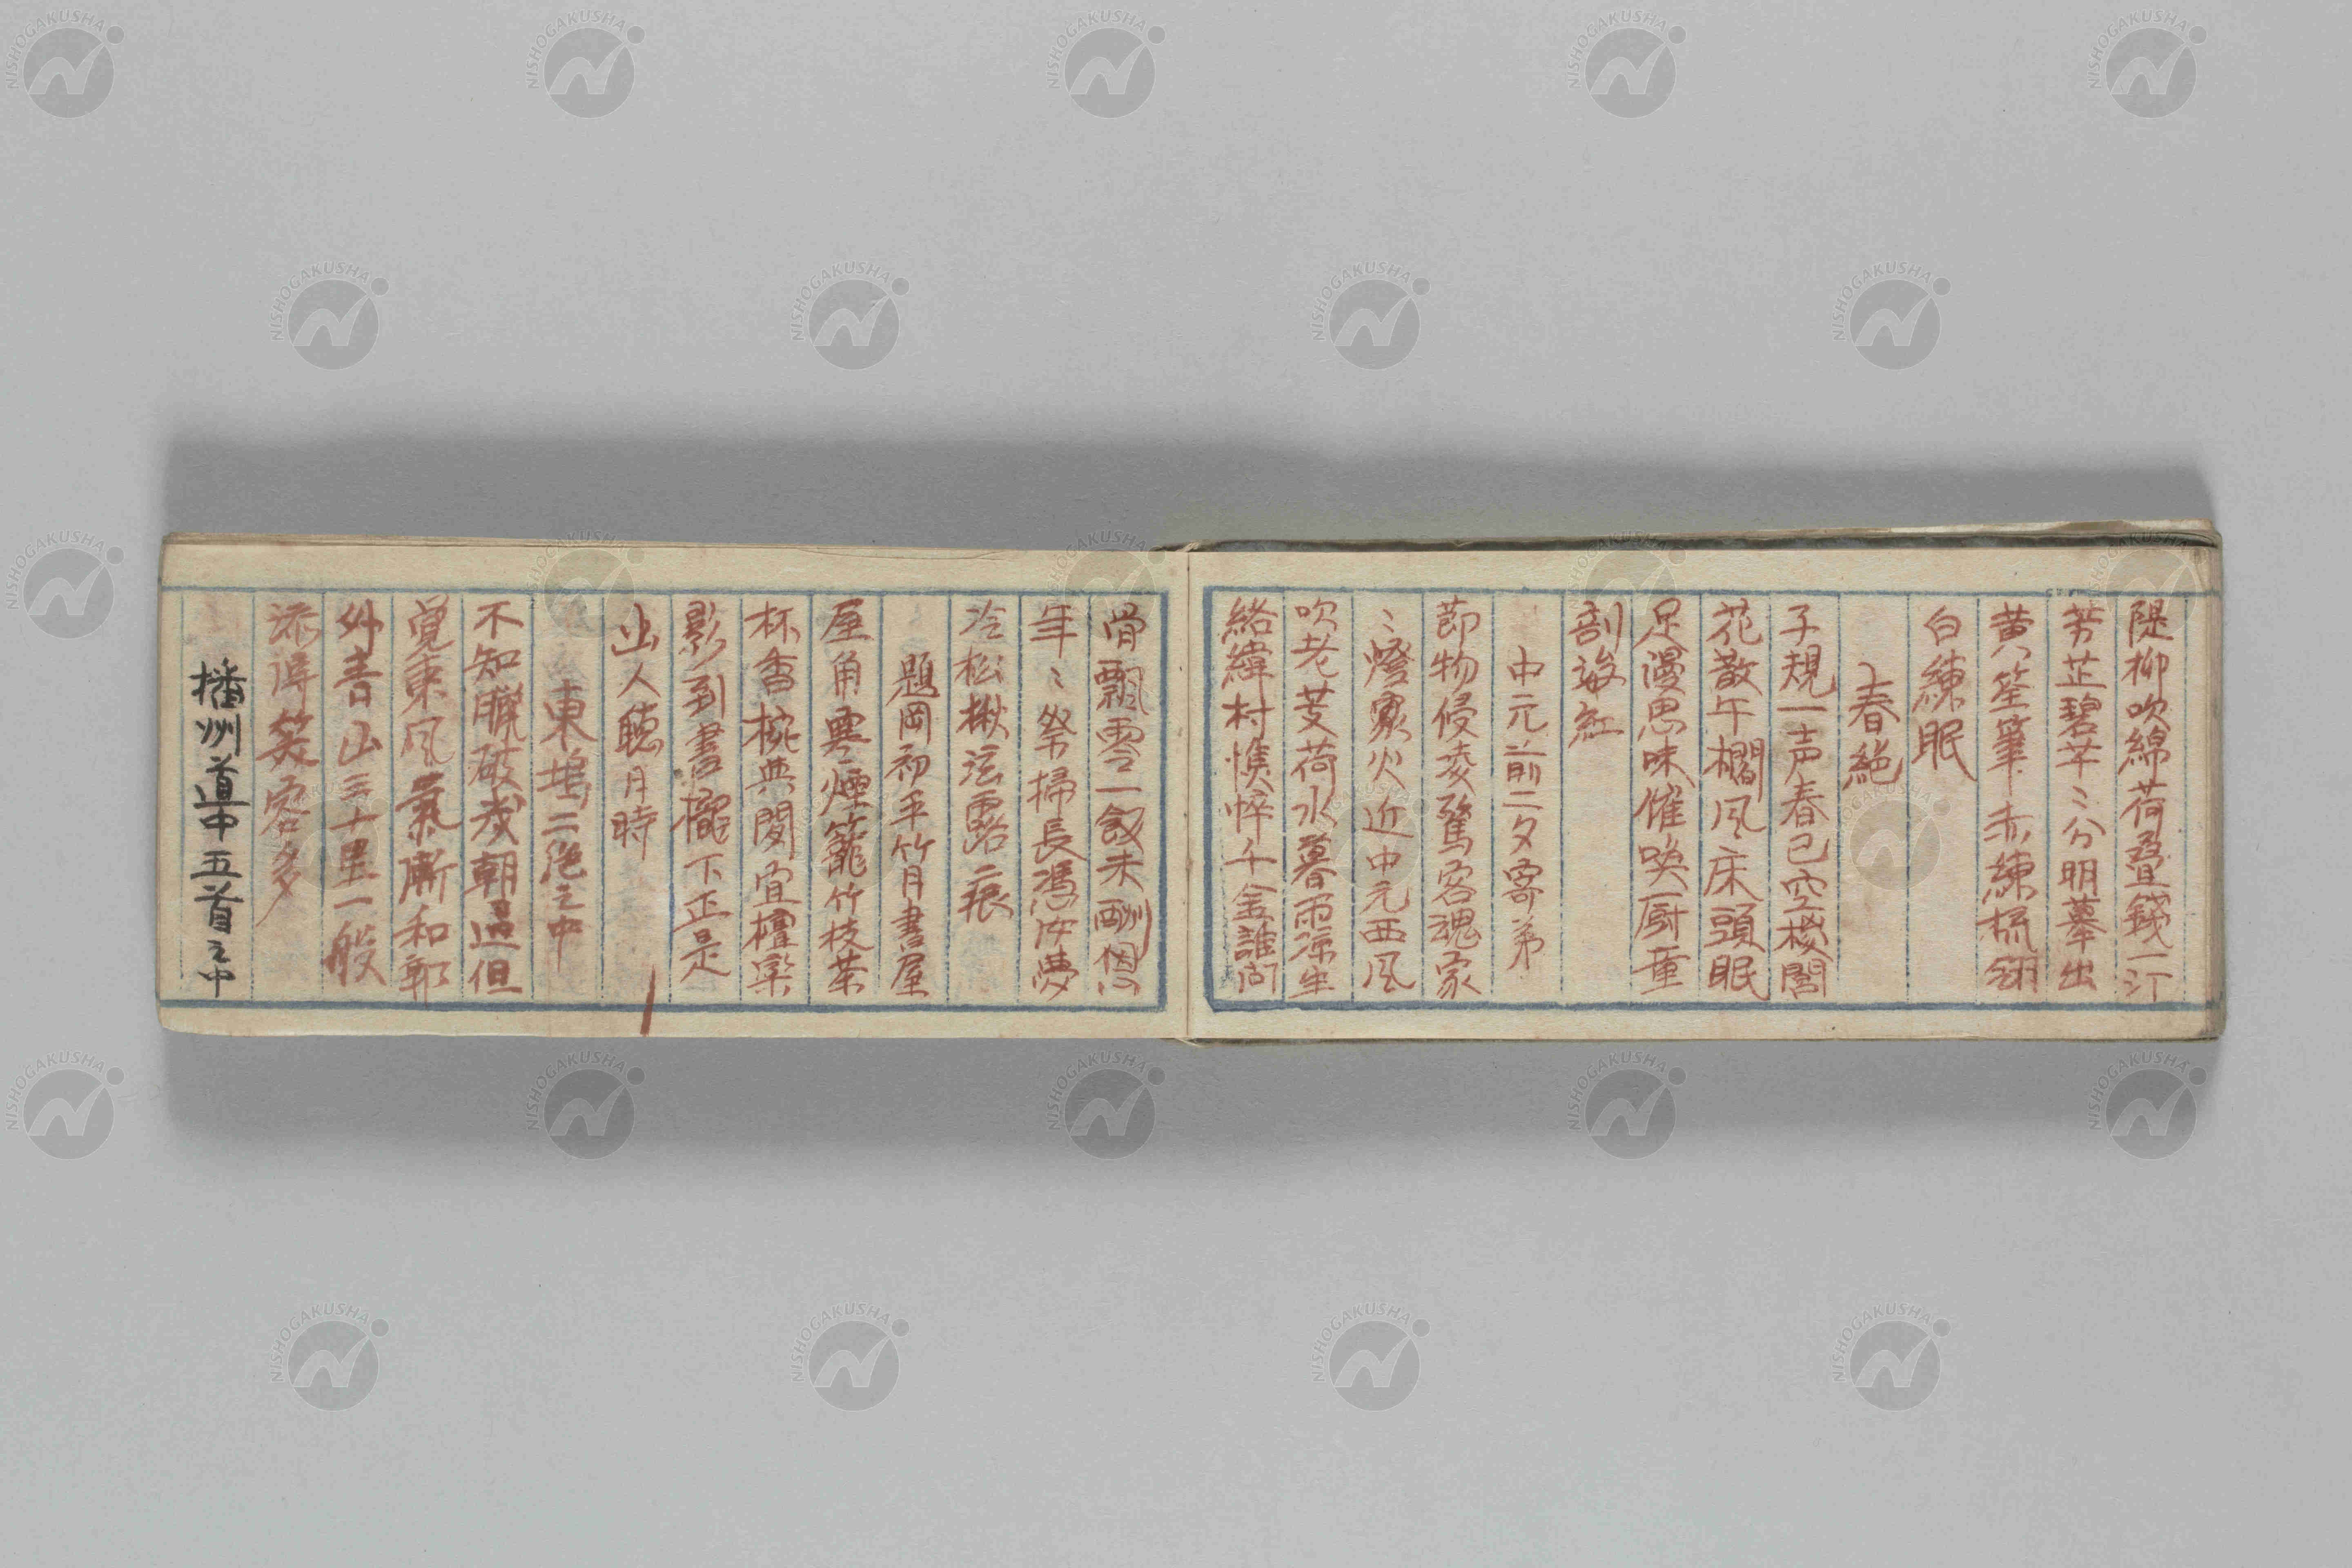 隄柳吹綿荷疊錢一汀
芳芷碧芊〻分明摹出
黄筌筆赤練梳翎
白練眠
春絶
子規一声春已空桜閣
花散午欄風床頭眠
足漫思味催喚厨童
剖海紅
中元前二夕寄弟
節物侵凌驚客魂家
〻燈火近中元西風
吹老芰荷水暮雨凉生
絡緯村憔悴千金誰問
骨飄零一飯未酬恩
年〻祭掃長憑汝夢
冷松楸泣露痕
題岡初平竹月書屋
屋角寒煙籠竹枝茶
杯香椀興閑宜檀欒
影到書櫳下正是
山人聴月時
東塢二絶之中
不知臘破幾朝過但
覚東風氣漸和郭
外青山三十里一般
添得笑容多
播州道中五首之中
NISHOGAKUSHA